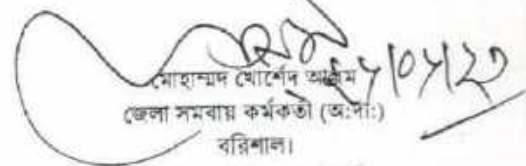 মোহাম্মদ খোর্শেদ আলম
জেলা সমবায় কর্মকর্তা (অ:দা:)
বরিশাল।